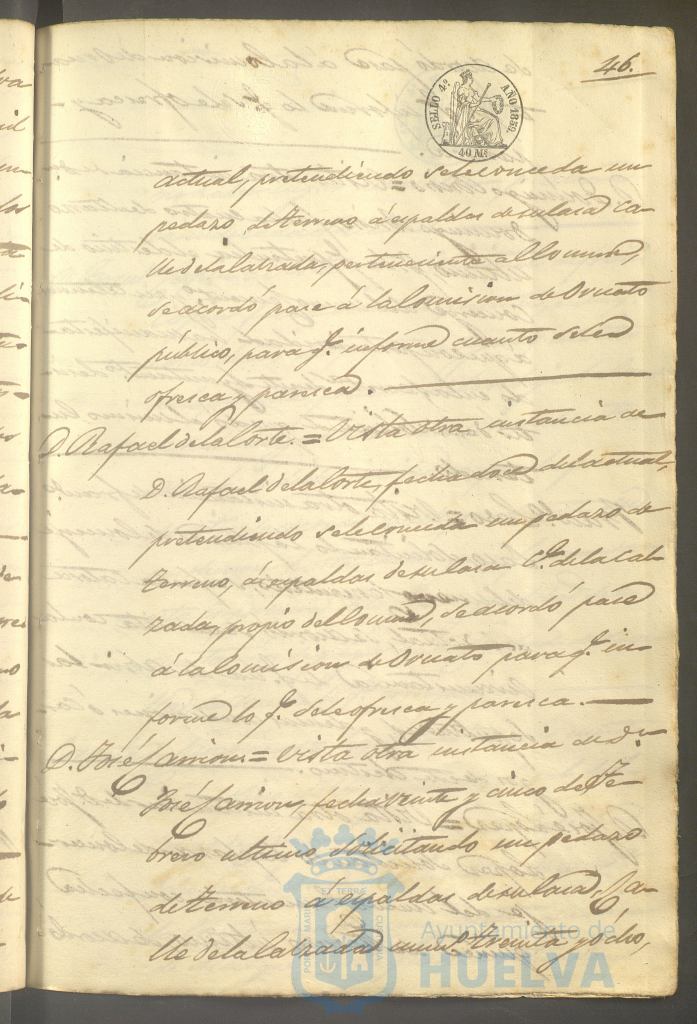 46.
SELLO 4º AÑO 1859.
40 Mˢ
actual, pretendiendo sele conceda un
pedazo de terreno á espaldas de su casa Ca-
lle de la Calzada, perteneciente al Comun,
se acordó pase á la Comision de Ornato
público, para qᵉ. informe cuanto sele
ofresca y paresca.
D. Rafael de la Corte. = Vista otra instancia de
D. Rafael de la Corte, fecha doce del actual,
pretendiendo sele conceda un pedazo de
terreno, á espaldas de su casa Cᵉ. de la Cal-
zada, propio del Comun, se acordó pase
á la Comision de Ornato para qᵉ. in-
forme lo qᵉ. sele ofresca y paresca.
D. José = Vista otra instancia de D.
José, fecha veinte y cinco de Fe-
brero ultimo solicitando un pedazo
de terreno á espaldas de su casa, Ca-
lle de la Calzada treinta y ócho,
Ayuntamiento de
HUELVA